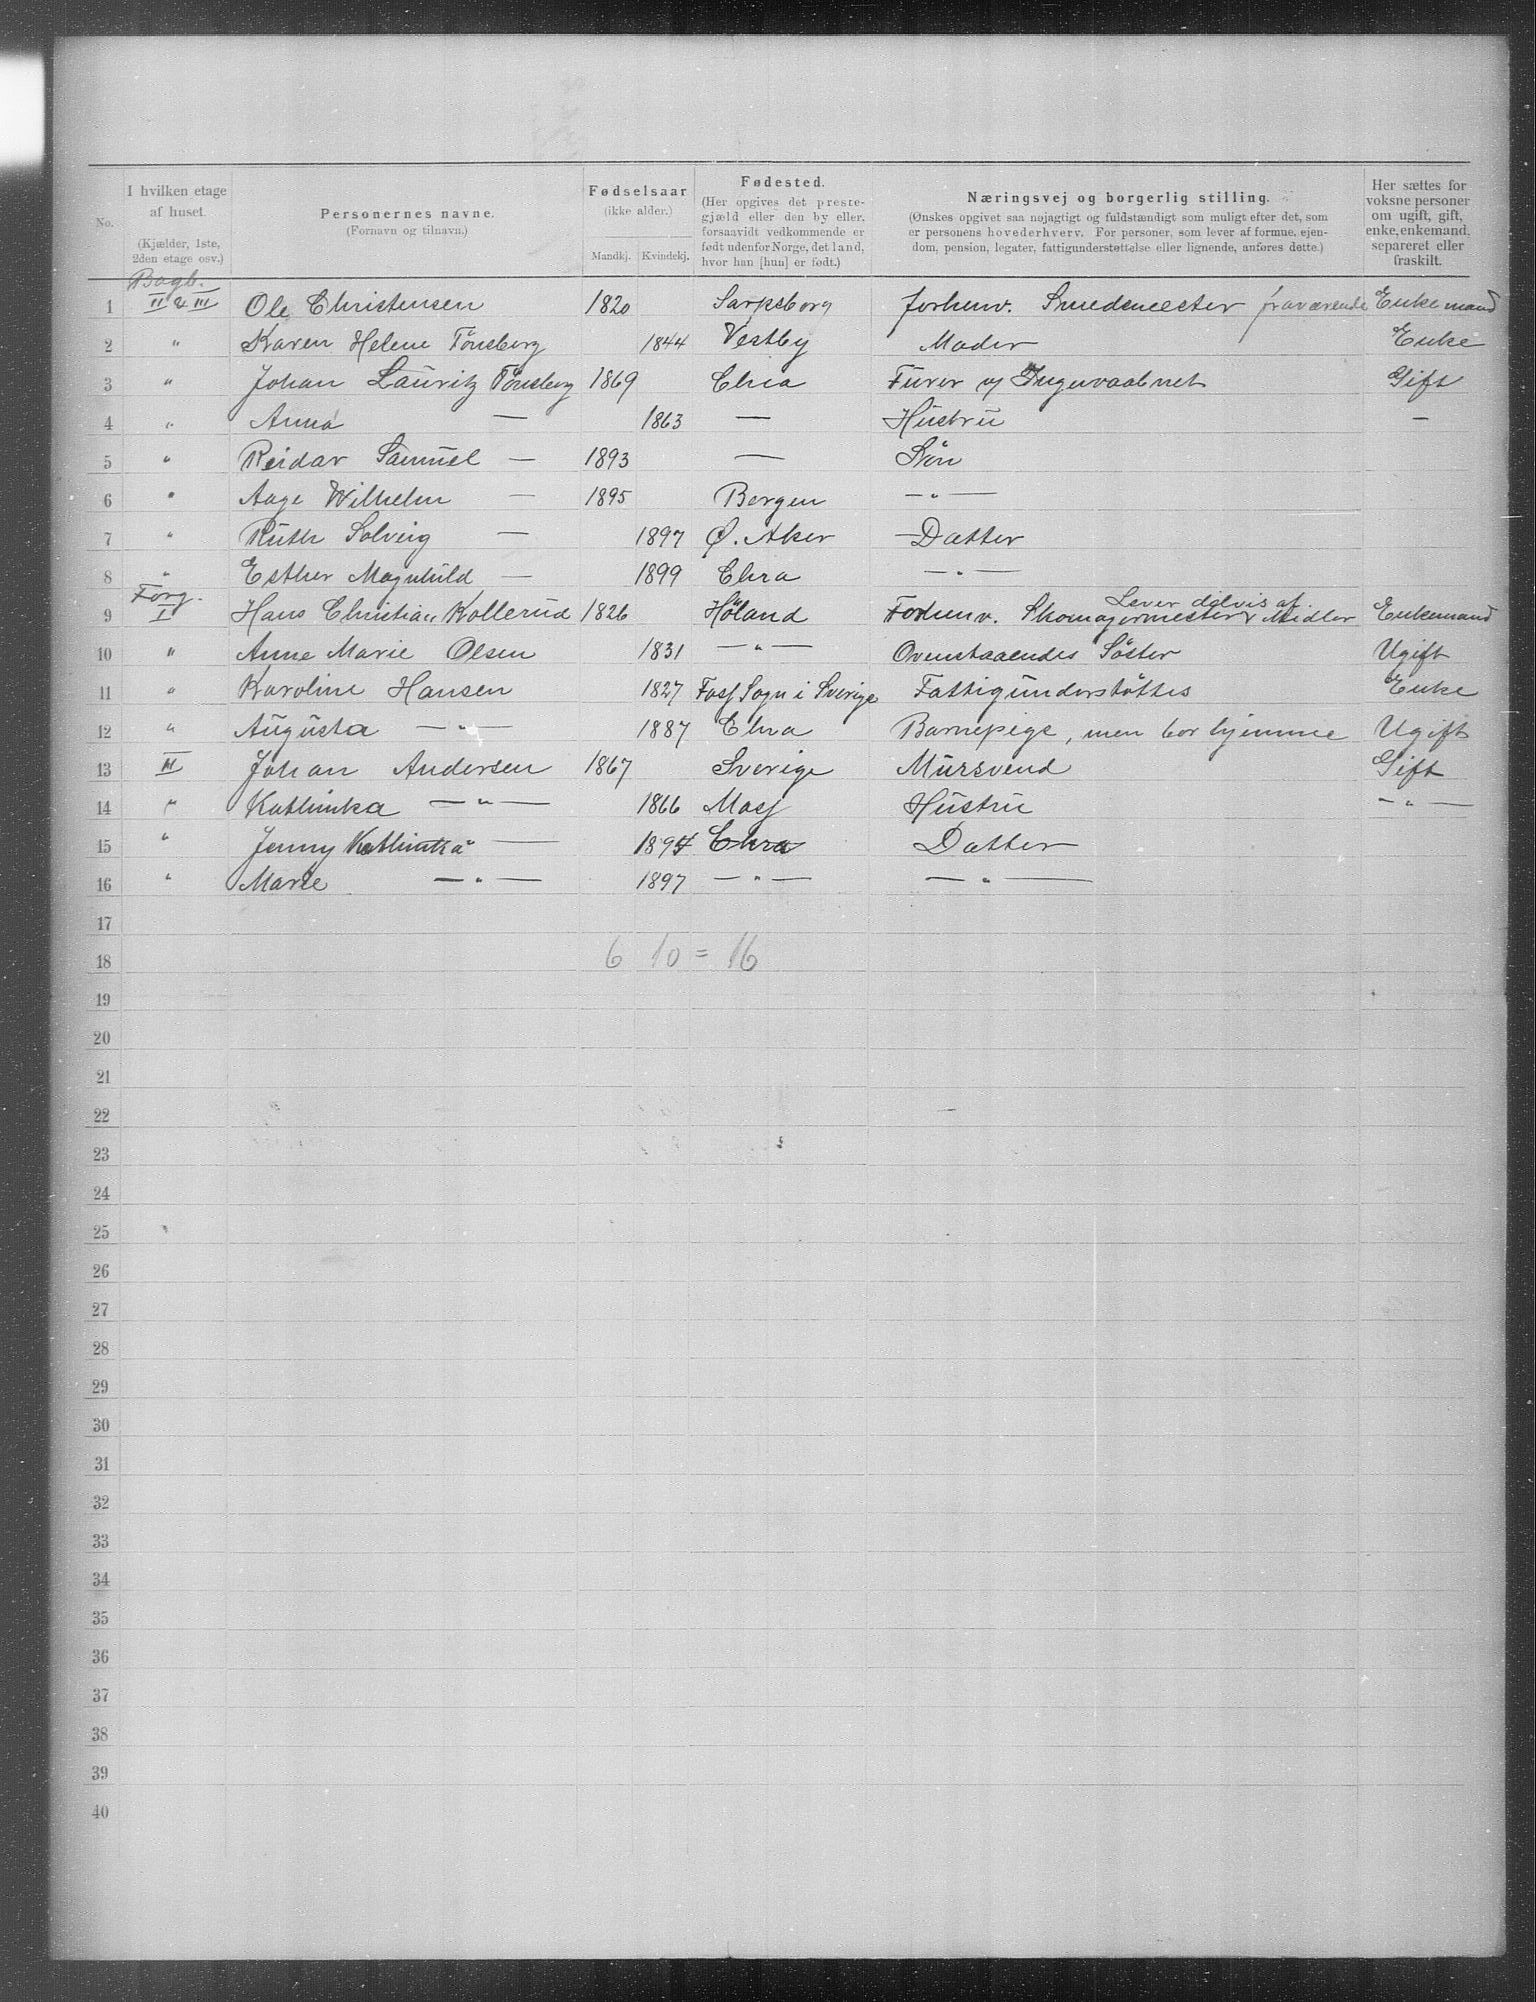 No.
I hvilken etage
af huset.
(Kjælder, 1ste,
2den etage osv.)
Personernes navne.
(Fornavn og tilnavn.)
Fødselsaar
(ikke alder.)
Mandkj. Kvindekj.
Fødested.
(Her opgives det præste-
gjæld eller den by eller,
forsaavidt vedkommende er
født udenfor Norge, det land,
hvor han [hun] er født.)
Næringsvej og borgerlig stilling.
(Ønskes opgivet saa nøjagtigt og fuldstændigt som muligt efter det, som
er personens hovederhverv. For personer, som lever af formue, ejen-
dom, pension, legater, fattigunderstøttelse eller lignende, anføres dette.)
Her sættes for
voksne personer
om ugift, gift,
enke, enkemand,
separeret eller
fraskilt.
Bagb.
1 II & III Ole Christensen 1820 Sarpsborg forhenv. Smedmester fraværende Enkemand
2 " Karen Helene Tönsberg 1844 Vestby Moder Enke
3 " Johan Lauritz Tönsberg 1869 Chra Furer v/ Ingenvaabnet Gift
4 " Anna — 1863 — Hustru —
5 " Reidar Samuel — 1893 — Sön
6 " Aage Wilhelm — 1895 Bergen — " —
7 " Ruth Solveig — 1897 Ø. Aker Datter
8 " Esther Magnhild — 1899 Chra — " —
Forg.
Lever delvis af
9 I Hans Christian Kollerud 1826 Höland Forhenv. Skomagermester Midler Enkemand
10 " Anne Marie Olsen 1831 — " — Ovenstaaendes Söster Ugift
11 " Karoline Hansen 1827 Sogn i Sverige Fattigunderstöttes Enke
12 " Augusta — " — 1887 Chra Barnepige, men bor hjemme Ugift
13 III Johan Andersen 1867 Sverige Mursvend Gift
14 " Kathinka — " — 1866 Moss Hustru — " —
15 " Jenny Kathinka — 1894 Chra Datter
16 " Marie — " — 1897 — " — — " —
17
18 6 10 = 16
19
20
21
22
23
24
25
26
27
28
29
30
31
32
33
34
35
36
37
38
39
40